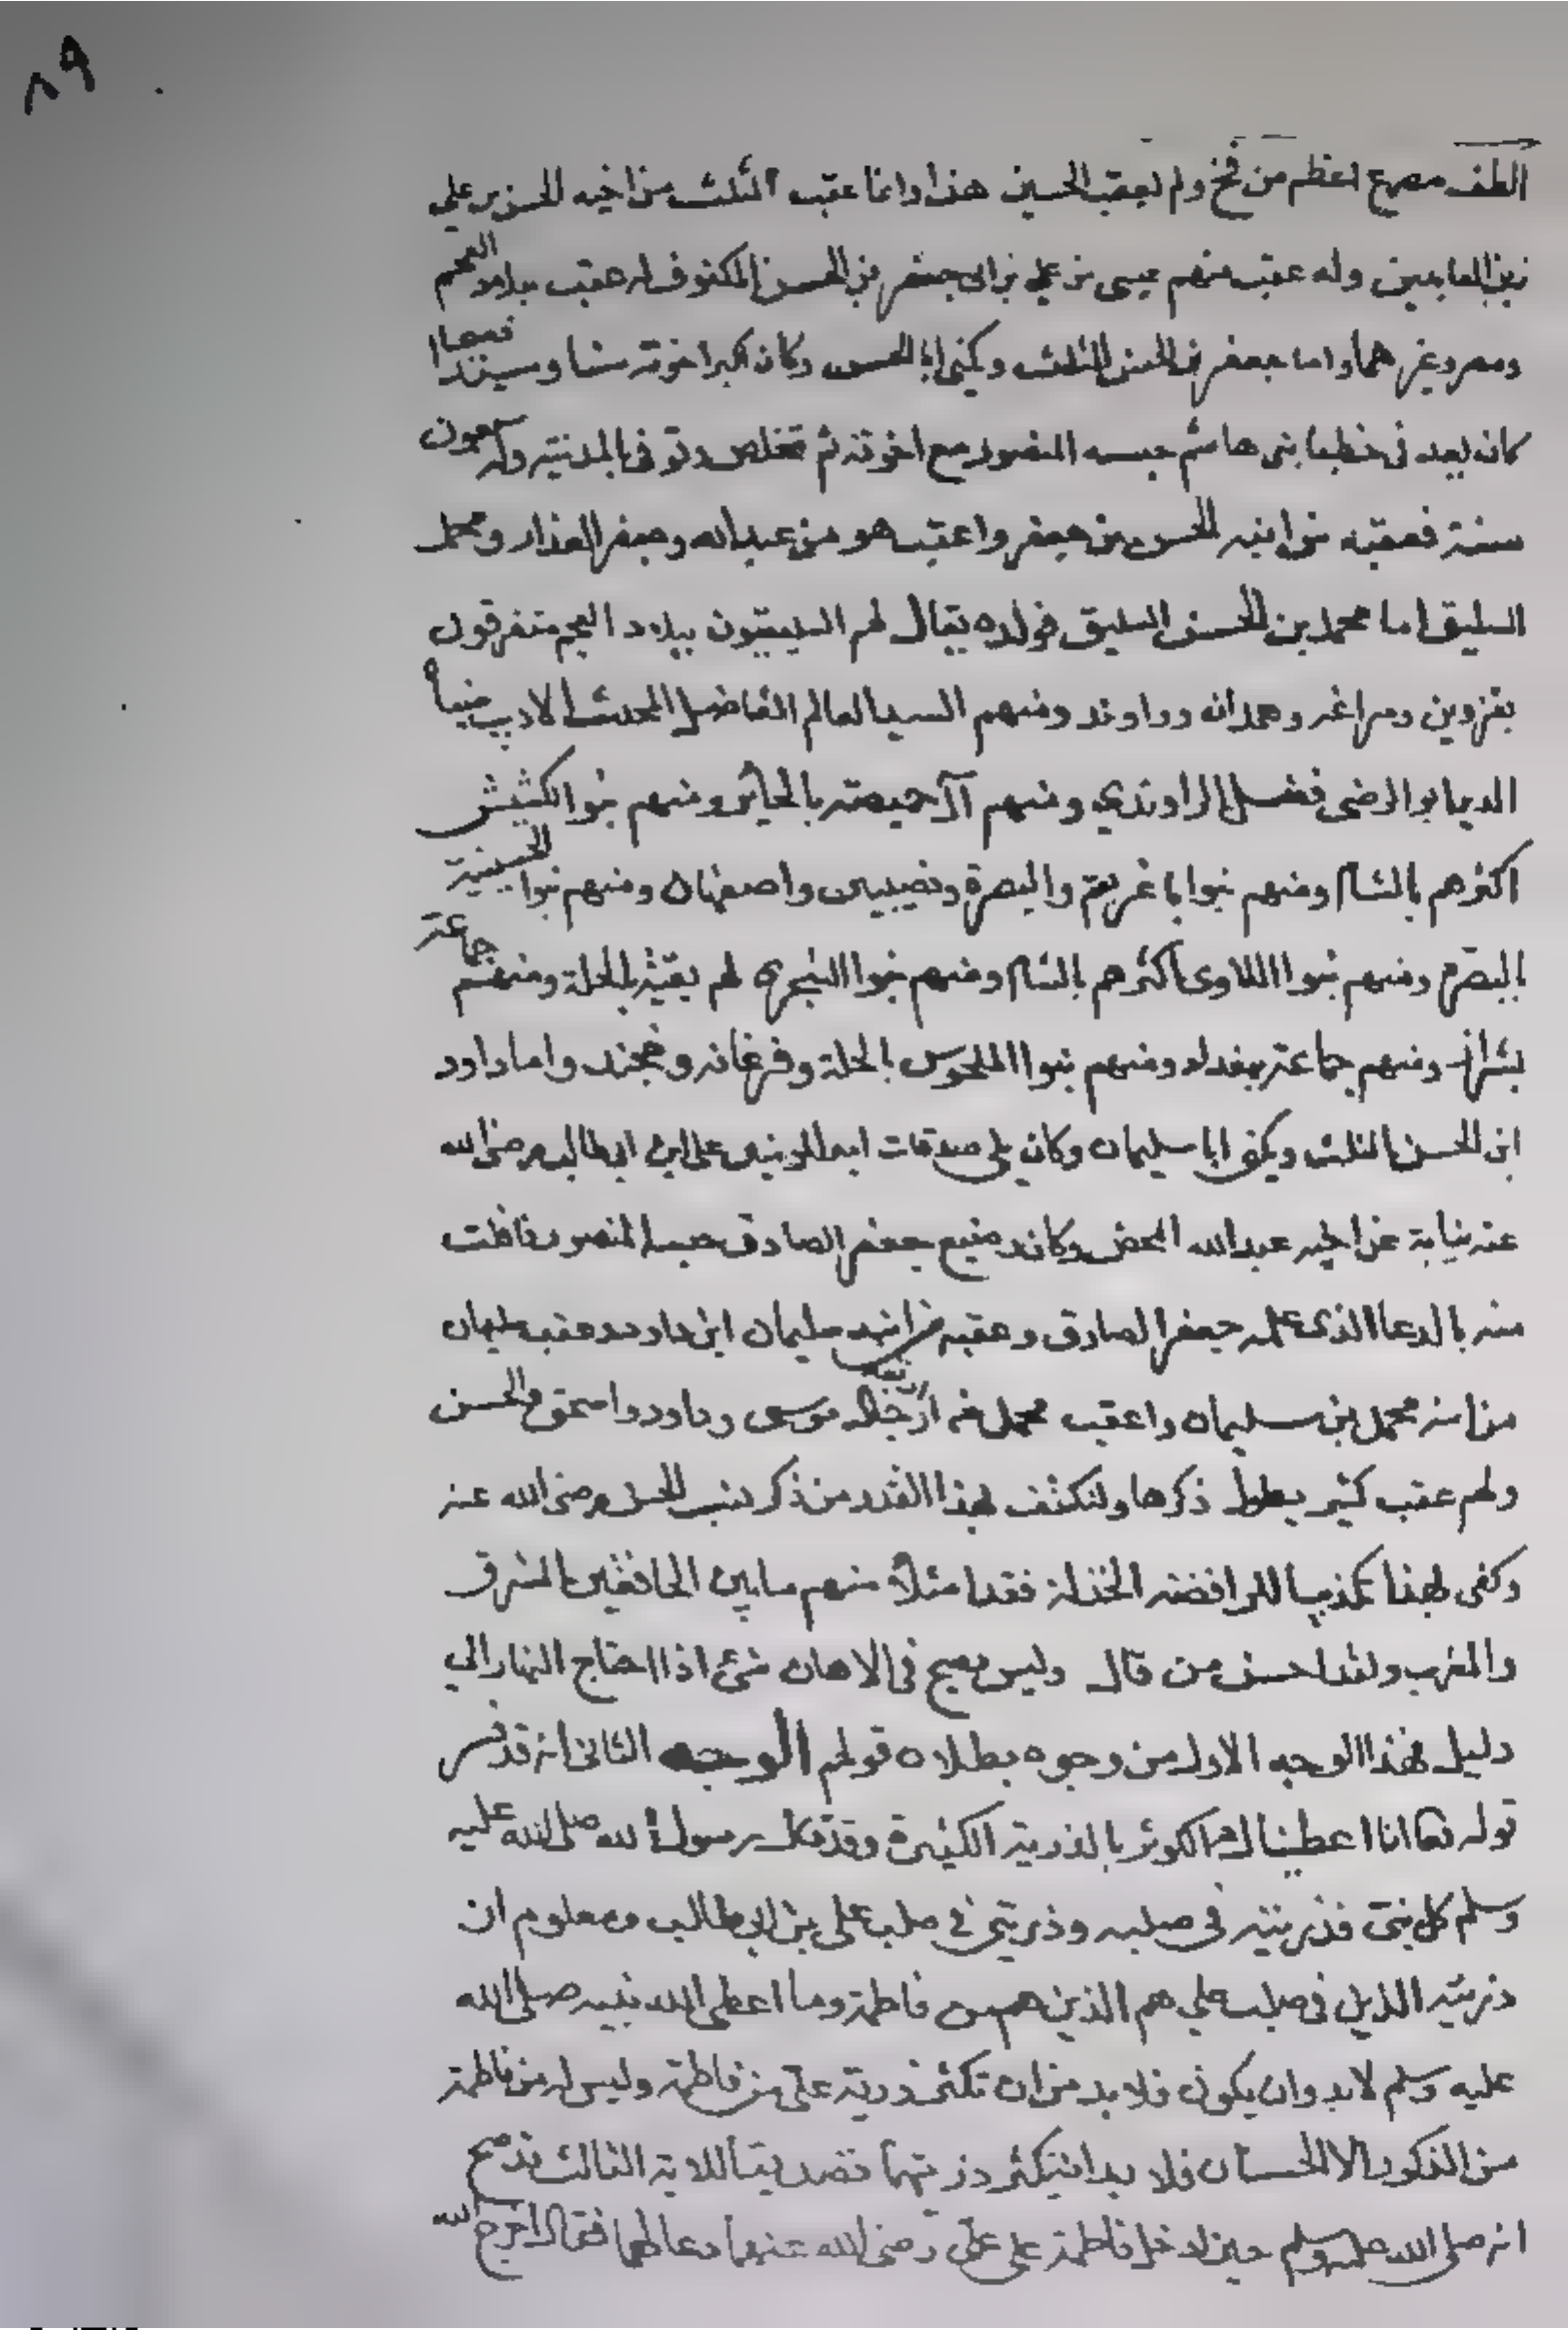 ٨٩
الطف مصرع اعظم من فخ ولم يعقب الحسين هذا وانما عقب المثلث من اخيه الحسن بن علي
زين العابدين وله عقب منهم عيسى بن علي بن ابي جعفر بن الحسن المكفوف له عقب ببلاد العجم
ومصر وغيرهما واما جعفر بن الحسن المثلث ويكنى ابا الحسن وكان اكبر اخوته سنا وسيدا فصيحا
كان يعد في خطبا بني هاشم حبسه المنصور مع اخوته ثم تخلص وتوفى بالمدنية وله سبعون
سنة فعقبه من ابنه الحسن بن جعفر واعقب هو من عبدالله وجعفر الغدار ومحمد
السليق اما محمد بن الحسن السليق فولده يقال لهم السليقيون ببلاد العجم متفرقون
بقزوين ومراغه وهمدان وراوند ومنهم السيد العالم الفاضل المحدث الاديب ضيا
الدين ابو الرضى فضل الراوندي ومنهم آل حميصه بالحائر ومنهم بنوا كشيش
اكثرهم بالشام ومنهم بنوا والبصرة ونصيبين واصفهان ومنهم بنوا الحسينية
بالبصره ومنهم بنوا اكثرهم بالشام ومنهم بنوا لهم بقية بالحلة ومنهم جماعة
بشراز ومنهم جماعة ببغداد ومنهم بنوا الملحوس بالحلة وفرغانه وخجند واما داود
ابن الحسن المثلث ويكنى ابا سليمان وكان يلي صدقات امير المومنين على ابن ابي طالب رضى الله
عنه نيابة عن اخيه عبدالله المحض وكان رضيع جعفر الصادق حبسه المنصور فافلت
منه بالدعا الذى علمه جعفر الصادق وعقبه من ابنه سليمان ابن داود وعقب سليمان
من ابنه محمد بن سليمان واعقب محمد من اربعة رجال موسى وداود واسحق والحسن
ولهم عقب كثير يطول ذكرها ولنكتف بهذا القدر من ذكر نسب الحسن رضى الله عنه
وكفى بهذا تكذيبا للرافضة الخذلة فقد امتلأ منهم ما بين الخافقين المشرق
والمغرب ولقد احسن من قال وليس يصح في الاذهان شئ اذا احتاج النهار الي
دليل فهذا الوجه الاول من وجوه بطلان قولهم الوجه الثاني انه قد فسر
قوله تعا انا اعطيناك الكوثر بالذرية الكثيرة وقد قال رسول الله صلى الله عليه
وسلم كل نبي فذريته في صلبه وذريتي في صلب علي بن ابي طالب ومعلوم ان
ذريته الذين في صلب علي هم الذين هم من فاطمة وما اعطى الله نبيه صلى الله
عليه وسلم لابد وان يكون فلا بد من ان تكثر ذرية علي من فاطمة وليس له من فاطمة
من الذكور الا الحسنان فلا بد ان تكثر ذريتهما تصديقا للاية الثالث قد صح
انه صلى الله عليه وسلم حين ادخل فاطمة على علي رضى الله عنهما دعا لهما فقال اخرج الله